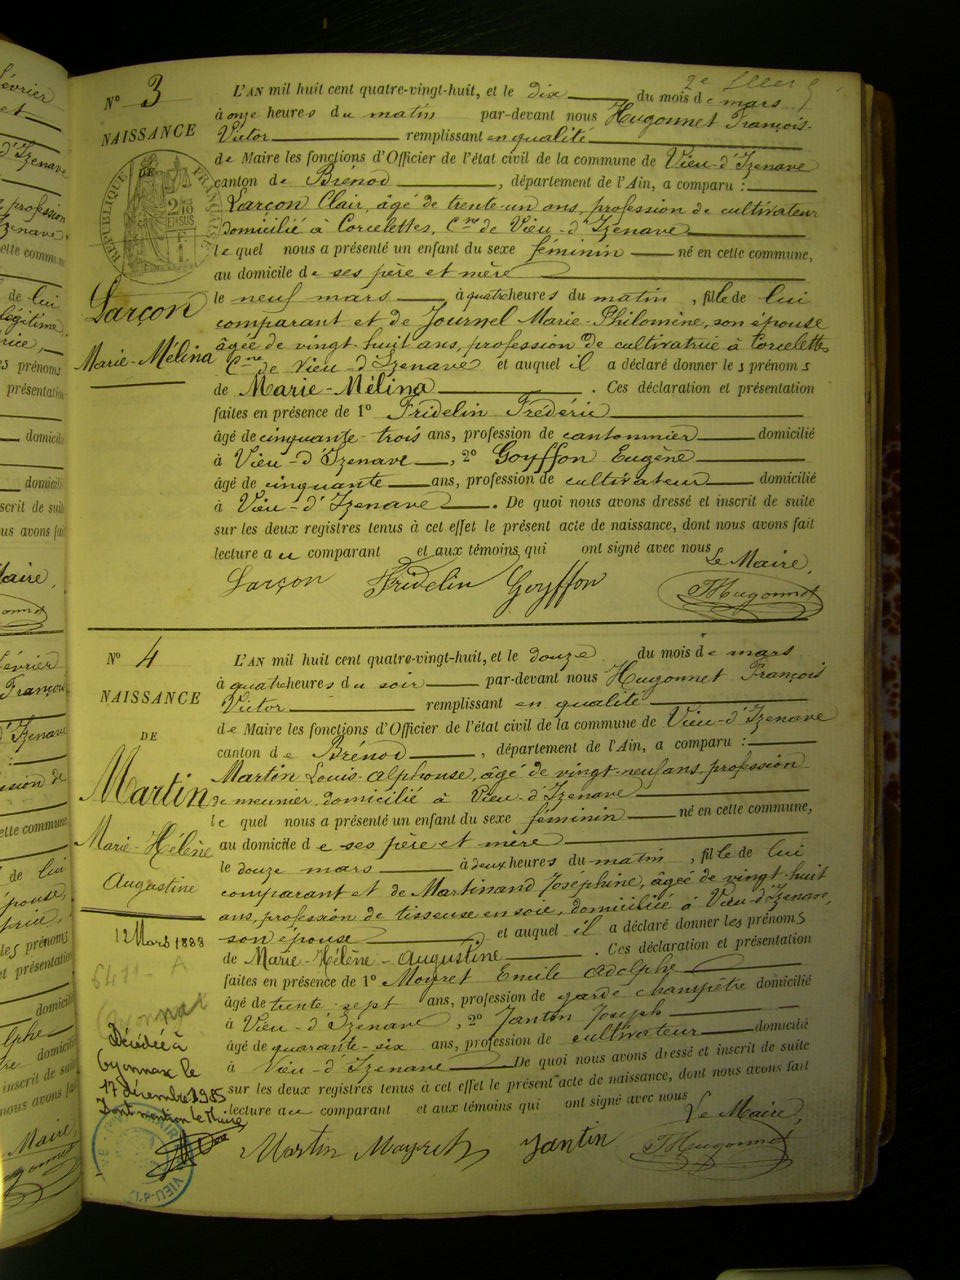 N° 3
NAISSANCE
DE
RÉPUBLIQUE FRANÇAISE
Larçon
Marie-Mélina
L'AN mil huit cent quatre-vingt-huit, et le dix du mois de mars
à onze heures du matin par-devant nous Hugonnet François-
Victor remplissant en qualité
de Maire les fonctions d'Officier de l'état civil de la commune de Vieu-d'Izenave
canton de Brénod, département de l'Ain, a comparu :
Larçon Clair, âgé de trente-un ans, profession de cultivateur
domicilié à Corcelettes, Cne de Vieu-d'Izenave
lequel nous a présenté un enfant du sexe féminin né en cette commune,
au domicile de ses père et mère
le neuf mars à quatre heures du matin, fille de lui
comparant et de Journel Marie-Philomène, son épouse
âgée de vingt-huit ans, profession de cultivatrice à Corcelettes
Cne de Vieu-d'Izenave et auquel il a déclaré donner les prénoms
de Marie-Mélina. Ces déclaration et présentation
faites en présence de 1° Fridelin Frédéric
âgé de cinquante-trois ans, profession de cantonnier domicilié
à Vieu-d'Izenave, 2° Goyffon Eugène
âgé de cinquante ans, profession de cultivateur domicilié
à Vieu-d'Izenave. De quoi nous avons dressé et inscrit de suite
sur les deux registres tenus à cet effet le présent acte de naissance, dont nous avons fait
lecture au comparant et aux témoins qui ont signé avec nous
Le Maire,
Larçon Fridelin Goyffon Hugonnet
N° 4
NAISSANCE
DE
Martin
Marie-Hélène
Augustine
12 Mars 1888
Décédée à
Oyonnax le
17 décembre 1985
Dont mention le Maire
L'AN mil huit cent quatre-vingt-huit, et le douze du mois de mars
à quatre heures du soir par-devant nous Hugonnet François
Victor remplissant en qualité
de Maire les fonctions d'Officier de l'état civil de la commune de Vieu-d'Izenave
canton de Brénod, département de l'Ain, a comparu :
Martin Louis-Alphonse, âgé de vingt-neuf ans, profession
de meunier, domicilié à Vieu-d'Izenave
lequel nous a présenté un enfant du sexe féminin né en cette commune,
au domicile de ses père et mère
le douze mars à deux heures du matin, fille de lui
comparant et de Martinand Joséphine, âgée de vingt-huit
ans, profession de tisseuse en soie, domiciliée à Vieu-d'Izenave,
son épouse et auquel il a déclaré donner les prénoms
de Marie-Hélène-Augustine. Ces déclaration et présentation
faites en présence de 1° Moyret Emile Adolphe
âgé de trente-sept ans, profession de garde champêtre domicilié
à Vieu-d'Izenave, 2° Jantin Joseph
âgé de quarante-six ans, profession de cultivateur domicilié
à Vieu-d'Izenave De quoi nous avons dressé et inscrit de suite
sur les deux registres tenus à cet effet le présent acte de naissance, dont nous avons fait
lecture au comparant et aux témoins qui ont signé avec nous
Le Maire,
Martin Moyret Jantin Hugonnet